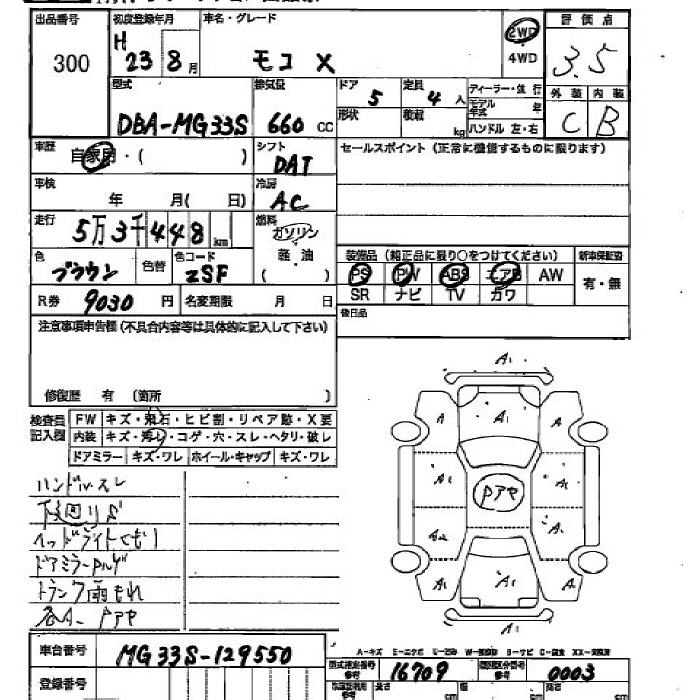 出品番号 初度登録年月 車名・グレード 2WD 評価点
300 H 23 8月 モコ X 4WD 3.5
型式 排気量 ドア 定員 ディーラー・並行 外装 内装
DBA-MG33S 660 CC 5 4人 モデル年式 年 C B
形状 積載 kg ハンドル 左・右
車歴 自家用・( ) シフト DAT セールスポイント (正常に機能するものに限ります)
車検 年 月( 日) 冷房 AC
走行 5万3千448km 燃料 ガソリン
軽油 ( )
色 ブラウン 色替 色コード ZSF
装備品 (純正品に限り○をつけてください) 新車保証書
PS PW ABS エアB AW 有・無
SR ナビ TV カワ
R券 9030円 名変期限 月 日
後日品
注意事項申告欄(不具合内容等は具体的に記入して下さい)
修復歴 有 〔箇所 〕
検査員記入欄 FW キズ・飛石・ヒビ割・リペア跡・X要
内装 キズ・汚レ・コゲ・穴・スレ・ヘタリ・破レ
ドアミラー キズ・ワレ ホイール・キャップ キズ・ワレ
ハンドルスレ
下廻りS
ヘッドライトくもり
トランク雨もれ
A1
A A1 A
A1 Pアセ A1
A2 A1
A A1 A
A1
A-キズ E-エクボ U-凹み
車台番号 MG33S-129550
型式指定番号 16709 類別区分番号 0003
登録番号 長さ cm 幅 cm 高さ cm